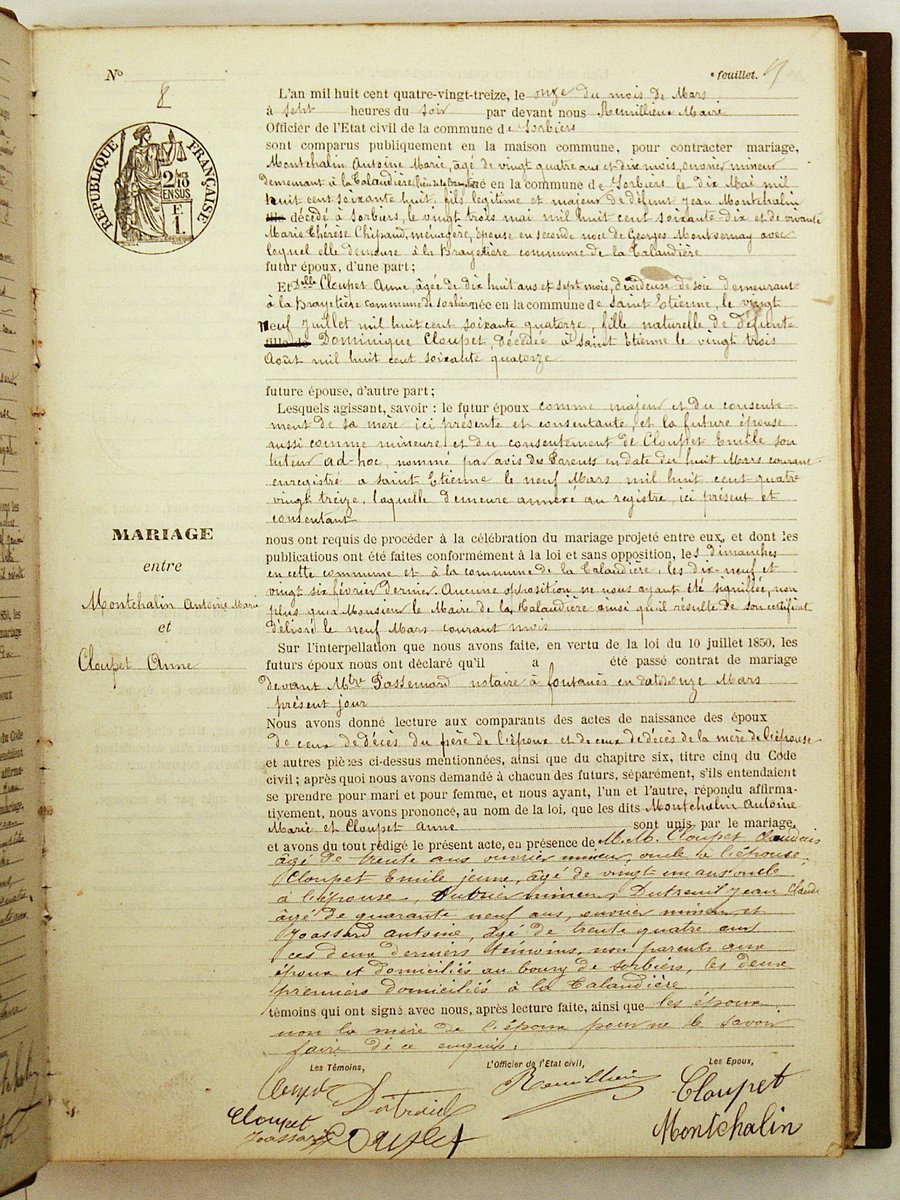 No
feuillet.
8
RÉPUBLIQUE FRANÇAISE
2/10
EN SUS
F.
1.
L'an mil huit cent quatre-vingt-treize, le onze du mois de Mars
à sept heures du soir par devant nous Reuillieux Maire
Officier de l'Etat civil de la commune de Sorbiers
sont comparus publiquement en la maison commune, pour contracter mariage,
Montchalin Antoine Marie, âgé de vingt quatre ans et dix mois, ouvrier mineur
demeurant à la Talaudière né en la commune de Sorbiers le dix Mai mil
huit cent soixante huit, fils légitime et majeur de défunt Jean Montchalin
décédé à Sorbiers, le vingt trois mai mil huit cent soixante dix et de vivante
Marie Thérèse Chipaud, ménagère, épouse en seconde noce de Georges avec
lequel elle demeure à la Brayetière commune de la Talaudière
futur époux, d'une part;
Et Delle Cloupet Anne, âgée de dix huit ans et sept mois, dévideuse de soie demeurant
à la Brayetière commune de Sorbiers née en la commune de Saint Etienne, le vingt
neuf Juillet mil huit cent soixante quatorze, fille naturelle de défunte
Dominique Cloupet, décédée à Saint Etienne le vingt trois
Août mil huit cent soixante quatorze
future épouse, d'autre part;
Lesquels agissant, savoir : le futur époux comme majeur et du consente-
ment de sa mère ici présente et consentante, et la future épouse
aussi comme mineure et du consentement de Cloupet Emile son
tuteur ad-hoc, nommé par avis des Parents en date du huit Mars courant
enregistré à Saint Etienne le neuf Mars mil huit cent quatre
vingt treize, laquelle demeure annexé au registre, ici présent et
consentant
MARIAGE
entre
Montchalin Antoine Marie
et
Cloupet Anne
nous ont requis de procéder à la célébration du mariage projeté entre eux, et dont les
publications ont été faites conformément à la loi et sans opposition, les dimanches
en cette commune et à la commune de la Talaudière, les dix neuf et
vingt six février dernier. Aucune opposition ne nous ayant été signifiée, non
plus qu'à Monsieur le Maire de la Talaudière ainsi qu'il résulte de son certificat
délivré le neuf Mars courant mois
Sur l'interpellation que nous avons faite, en vertu de la loi du 10 juillet 1850, les
futurs époux nous ont déclaré qu'il a été passé contrat de mariage
devant Mtre Passemard notaire à Fontanès en date onze Mars
présent jour
Nous avons donné lecture aux comparants des actes de naissance des époux
de ceux de décès du père de l'époux et de ceux de décès de la mère de l'épouse
et autres pièces ci-dessus mentionnées, ainsi que du chapitre six, titre cinq du Code
civil; après quoi nous avons demandé à chacun des futurs, séparément, s'ils entendaient
se prendre pour mari et pour femme, et nous ayant, l'un et l'autre, répondu affirma-
tivement, nous avons prononcé, au nom de la loi, que les dits Montchalin Antoine
Marie et Cloupet Anne sont unis par le mariage,
et avons du tout rédigé le présent acte, en présence de M.M. Cloupet
âgé de trente ans ouvrier mineur, oncle à l'épouse,
Cloupet Emile jeune, âgé de vingt un ans oncle
à l'épouse, ouvrier mineur, Dutreuil Jean Claude
âgé de quarante neuf ans, ouvrier mineur, et
Joassard Antoine, âgé de trente quatre ans
ces deux derniers témoins, non parents aux
époux et domiciliés au bourg de Sorbiers, les deux
premiers domiciliés à la Talaudière
témoins qui ont signé avec nous, après lecture faite, ainsi que les époux
non la mère de l'époux pour ne le savoir
faire de ce enquis.
Les Témoins,
L'Officier de l'Etat civil,
Les Epoux,
Reuillieux
Cloupet
Cloupet
Joassard
Montchalin